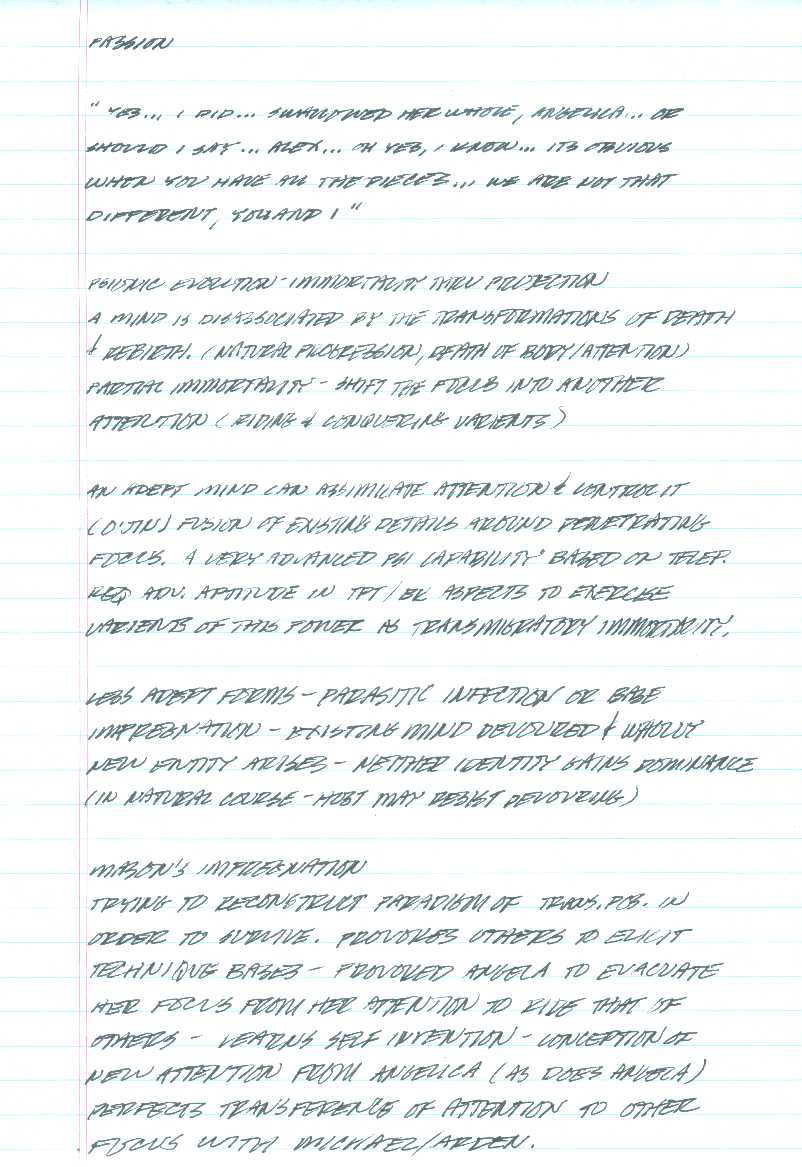 PASSION
" YES... I DID... SWALLOWED HER WHOLE, ANGELICA... OR
SHOULD I SAY... ALEX... OH YES, I KNOW... ITS OBVIOUS
WHEN YOU HAVE ALL THE PIECES... WE ARE NOT THAT
DIFFERENT, YOU AND I "
PSIONIC EVOLUTION - IMMORTALITY THRU PROJECTION
A MIND IS DISASSOCIATED BY THE TRANSFORMATIONS OF DEATH
& REBIRTH. (NATURAL PROGRESSION, DEATH OF BODY/ATTENTION)
PARTIAL IMMORTALITY - SHIFT THE FOCUS INTO ANOTHER
ATTENTION (RIDING & CONQUERING VARIENTS)
AN ADEPT MIND CAN ASSIMILATE ATTENTION & CONTROL IT
(O'JIN) FUSION OF EXISTING DETAILS AROUND PENETRATING
FOCUS. A VERY ADVANCED PSI CAPABILITY BASED ON TELEP.
REQ ADV. APTITUDE IN TPT/ ASPECTS TO EXERCISE
VARIENTS OF THIS POWER AS TRANSMIGRATORY IMMORTALITY.
LESS ADEPT FORMS - PARASITIC INFECTION OR BASE
IMPREGNATION - EXISTING MIND DEVOURED & WHOLLY
NEW ENTITY ARISES - NEITHER IDENTITY GAINS DOMINANCE
(IN NATURAL COURSE - HOST MAY RESIST DEVOURING)
MASON'S IMPREGNATION
TRYING TO RECONSTRUCT PARADIGM OF TRANS. IN
ORDER TO SURVIVE. PROVOKES OTHERS TO ELICIT
TECHNIQUE BASES - PROVOKED ANGELA TO EVACUATE
HER FOCUS FROM HER ATTENTION TO RIDE THAT OF
OTHERS - LEARNS SELF INVENTION - CONCEPTION OF
NEW ATTENTION FROM ANGELICA (AS DOES ANGELA)
PERFECTS TRANSFERENCE OF ATTENTION TO OTHER
FOCUS WITH MICHAEL/ARDEN.